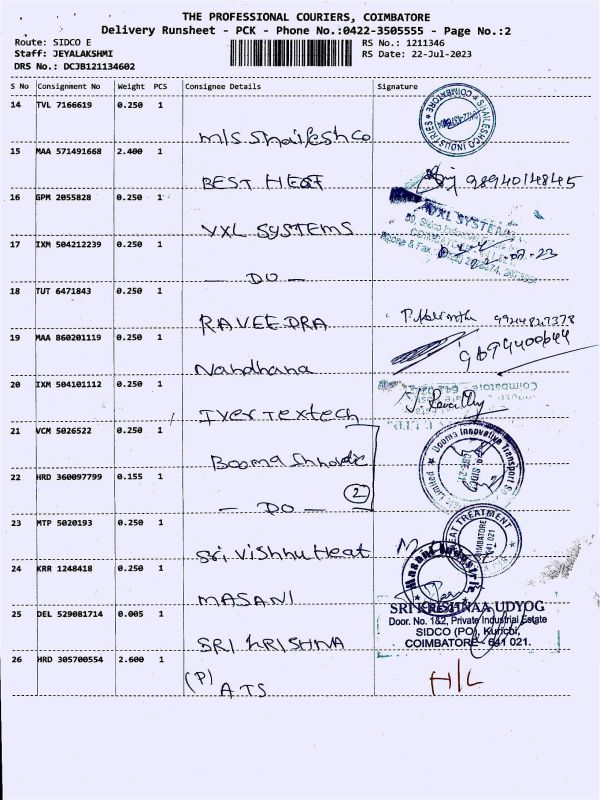 THE PROFESSIONAL COURIERS, COIMBATORE
Delivery Runsheet - PCK - Phone No.:0422-3505555 - Page No.:2
Route: SIDCO E
RS No.: 1211346
Staff: JEYALAKSHMI
RS Date: 22-Jul-2023
DRS No.: DCJB121134602
S No Consignment No Weight PCS Consignee Details Signature
14 TVL 7166619 0.250 1
M/S. Shaileshco
15 MAA 571491668 2.400 1
BEST HEAT 9894014845
16 GPM 2055828 0.250 1
VXL SYSTEMS
VXL SYSTEMS
17 IXM 504212239 0.250 1
- DO -
18 TUT 6471843 0.250 1
RAVEEDRA
19 MAA 860201119 0.250 1
Nandhana 9694400644
20 IXM 504101112 0.250 1
Coimbatore
Iver Textech
21 VCM 5026522 0.250 1
Booma Innovative Transport
Booma
22 HRD 360097799 0.155 1
- DO - 2
23 MTP 5020193 0.250 1
HEAT TREATMENT
COIMBATORE
641 021
Sri Vishnu Heat
24 KRR 1248418 0.250 1
Masani Industrie
MASANI
25 DEL 529081714 0.005 1
SRI KRISHNAA UDYOG
Door. No. 1&2, Private Industrial Estate
SIDCO (PO), Kurichi,
COIMBATORE - 641 021.
SRI KRISHNA
26 HRD 305700554 2.600 1
(P) ATS H/L